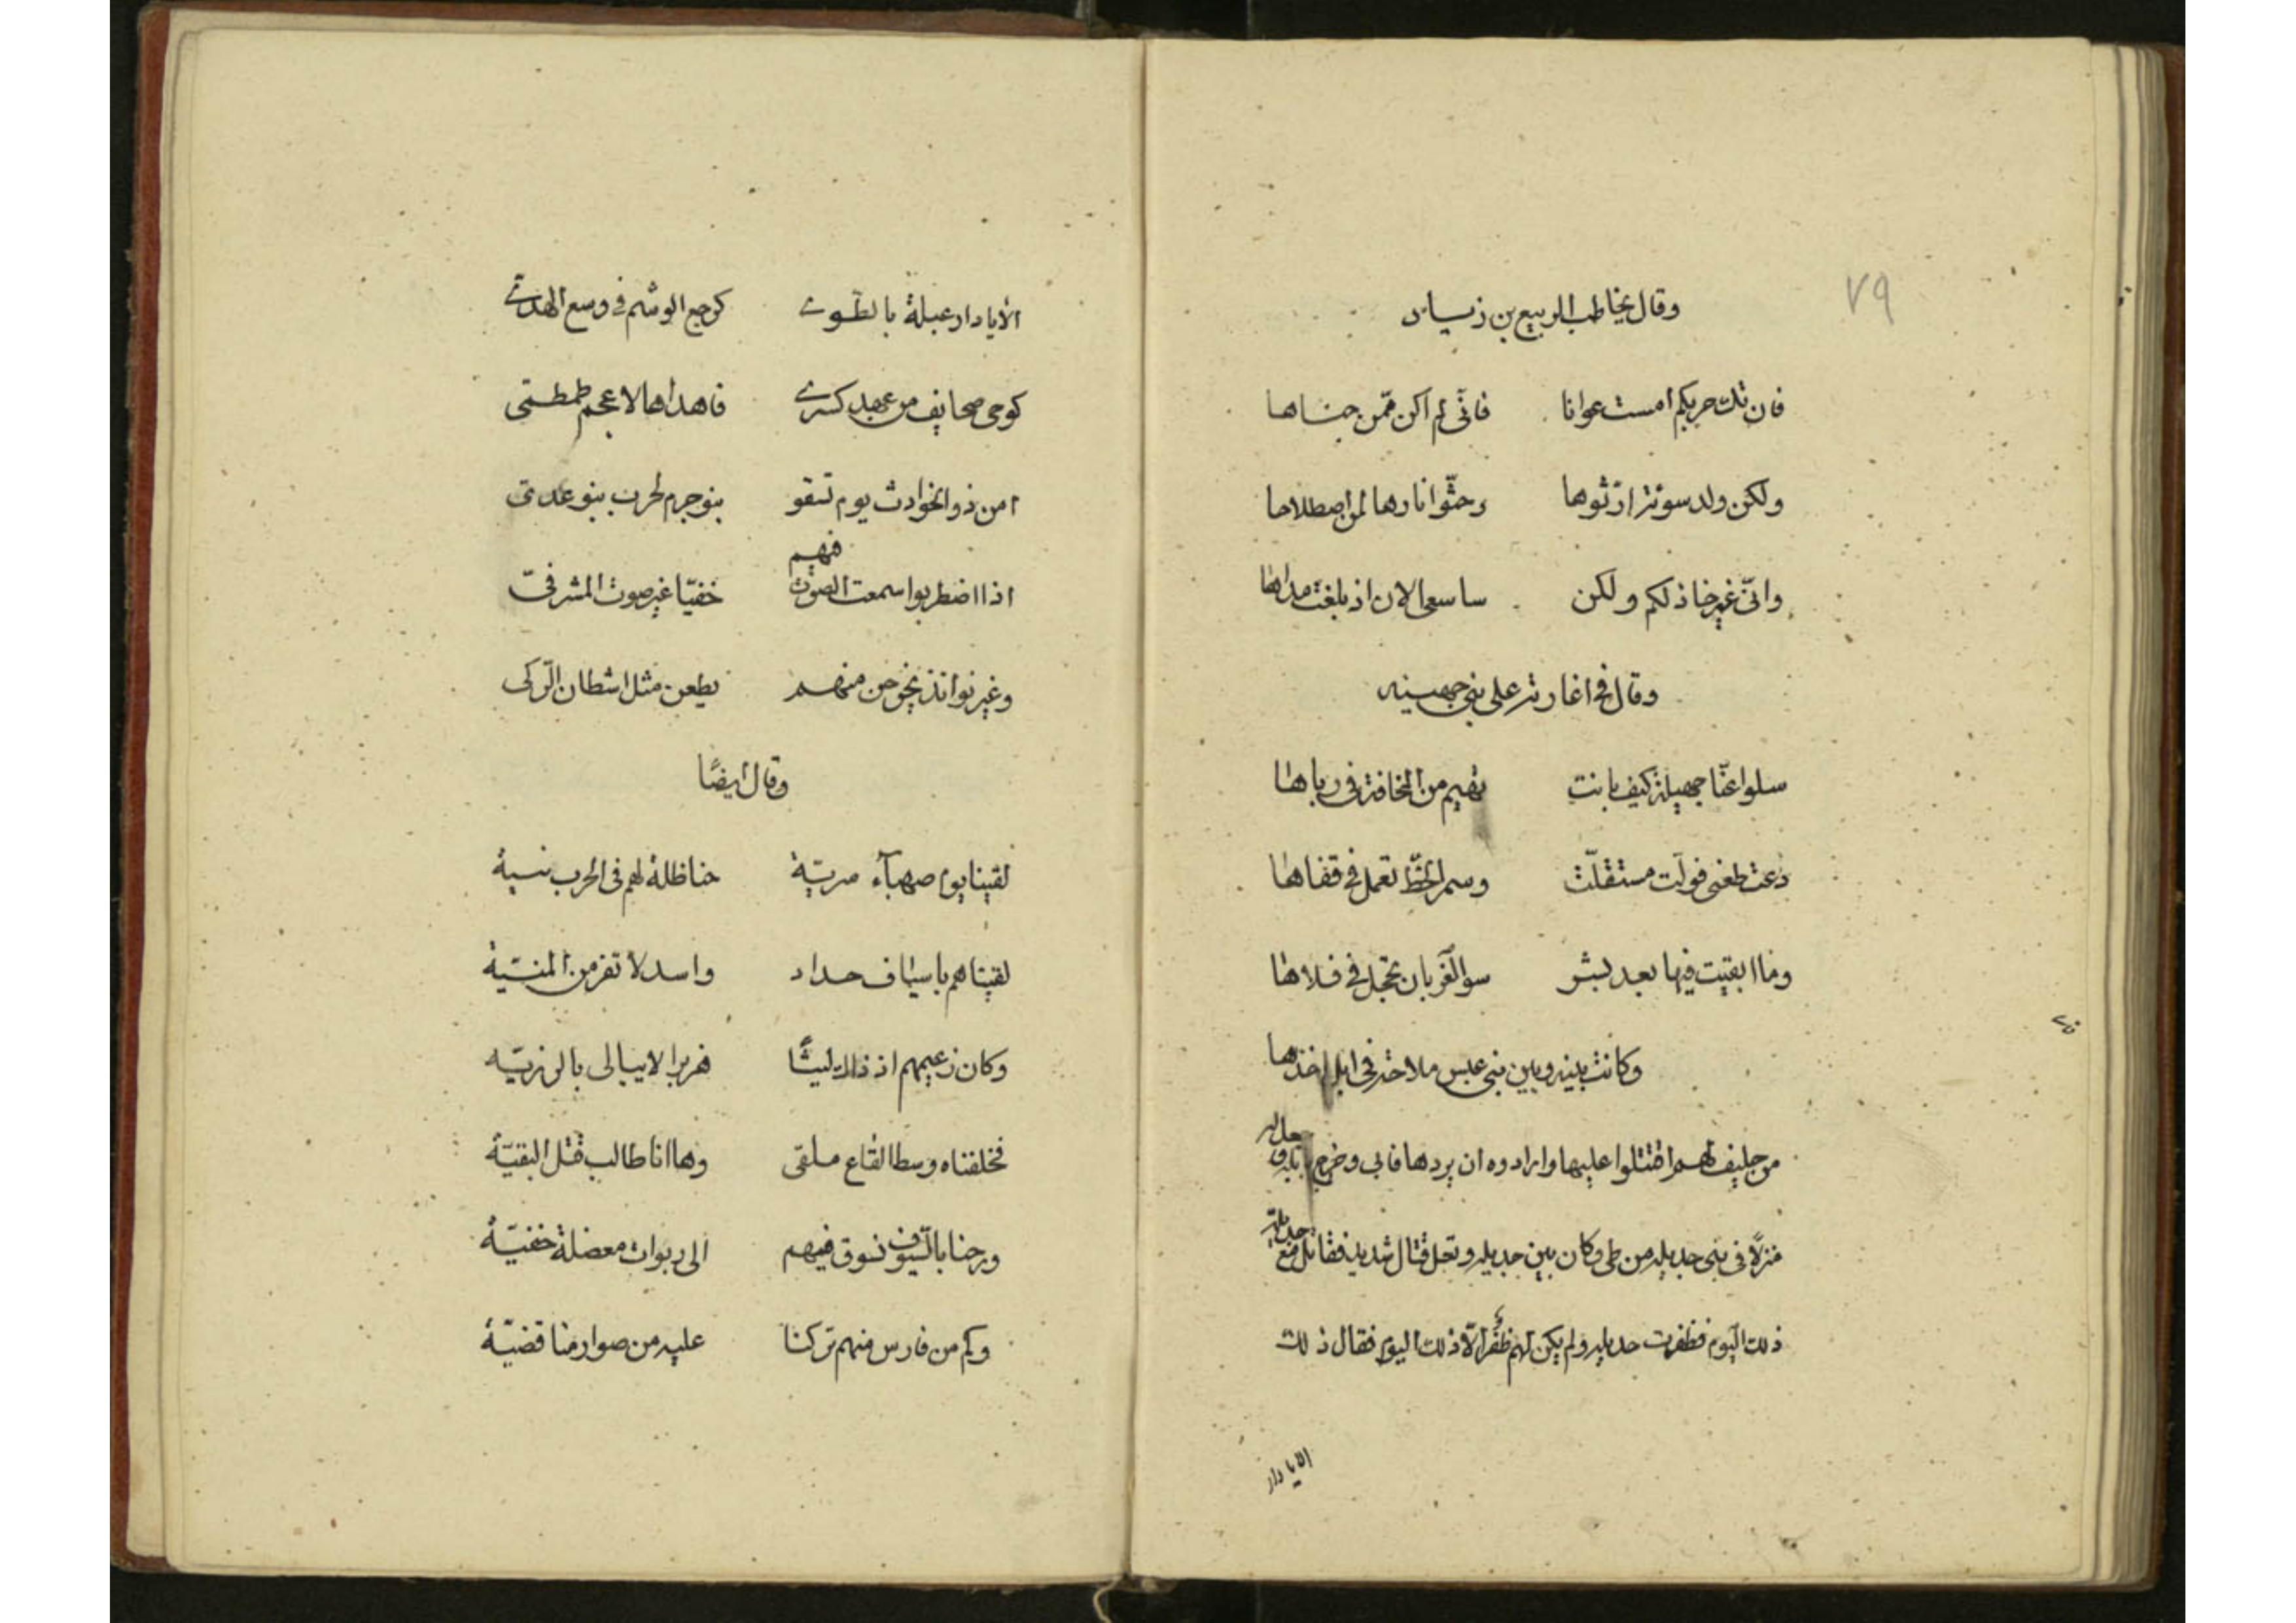 ٧٩
وقال يخاطب الربيع بن زياد
فان تك حربكم امست عوانا فانى لم اكن ممّن جناها
ولكن ولد سودة ارّثوها وحثّوا نارها لمن اصطلاها
وانّى غير خاذلكم ولكن ساسعى الان اذ بلغت مداها
وقال فى اغارته على بنى جهينه
سلوا عنّا جهينة كيف باتت تهيم من المخافة فى رباها
طعنى فولّت مستقلّت وسمر الخطّ تعمل فى قفاها
وما ابقيت فيها بعد بشر سوى الغربان تحجل فى فلاها
وكانت بينه وبين بنى عبس ملاحة فى ابل اخذها
من حليف لهم اقتتلوا عليها وارادوه ان يردها فابى وخرج
منزلا فى بنى جديله من طى وكان بين جديله وثعل قتال شديد فقاتل مع جديلة
ذلك اليوم فظفرت جديله ولم يكن لهم ظفر الّا ذلك اليوم فقال ذلك
الايا دار
الايا دار عبلة بالطّوى كرجع الوشم فى وسع الهدىّ
كوحى صحايف من عهد كسرى فاهداها لاعجم طمطمى
امن ذو الحوادث يوم تسقو بنو جرم لحرب بنو عدى
اذا اضطربوا سمعت الصوت فيهم خفيّا غير صوت المشرفىّ
وغير نوافذ يخرجن منهم بطعن مثل اشطان الرّكى
وقال ايضًا
لقينا يوم صهبآء سريّة حناظلة لهم فى الحرب نية
لقيناهم باسياف حداد واسد لا تفر من المنيّة
وكان زعيمهم اذ ذاك ليثًا هزبرا لا يبالى بالرزيّه
فخلفناه وسط القاع ملقى وها انا طالب قتل البقيّة
ورحنا بالسّيوف نسوق فيهم الى ربوات معضلة خفيّة
وكم من فارس منهم تركنا عليه من صوارمنا قضيّة